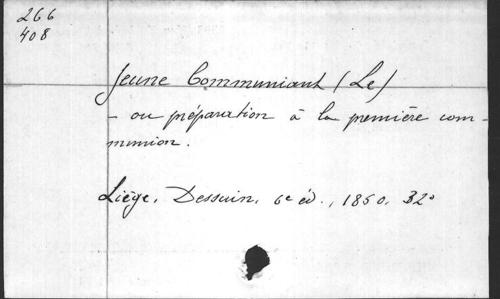 266
408
Jeune Communiant (Le)
- ou préparation à la première com-
munion.
Liège, Dessain, 6e éd., 1850. 32°